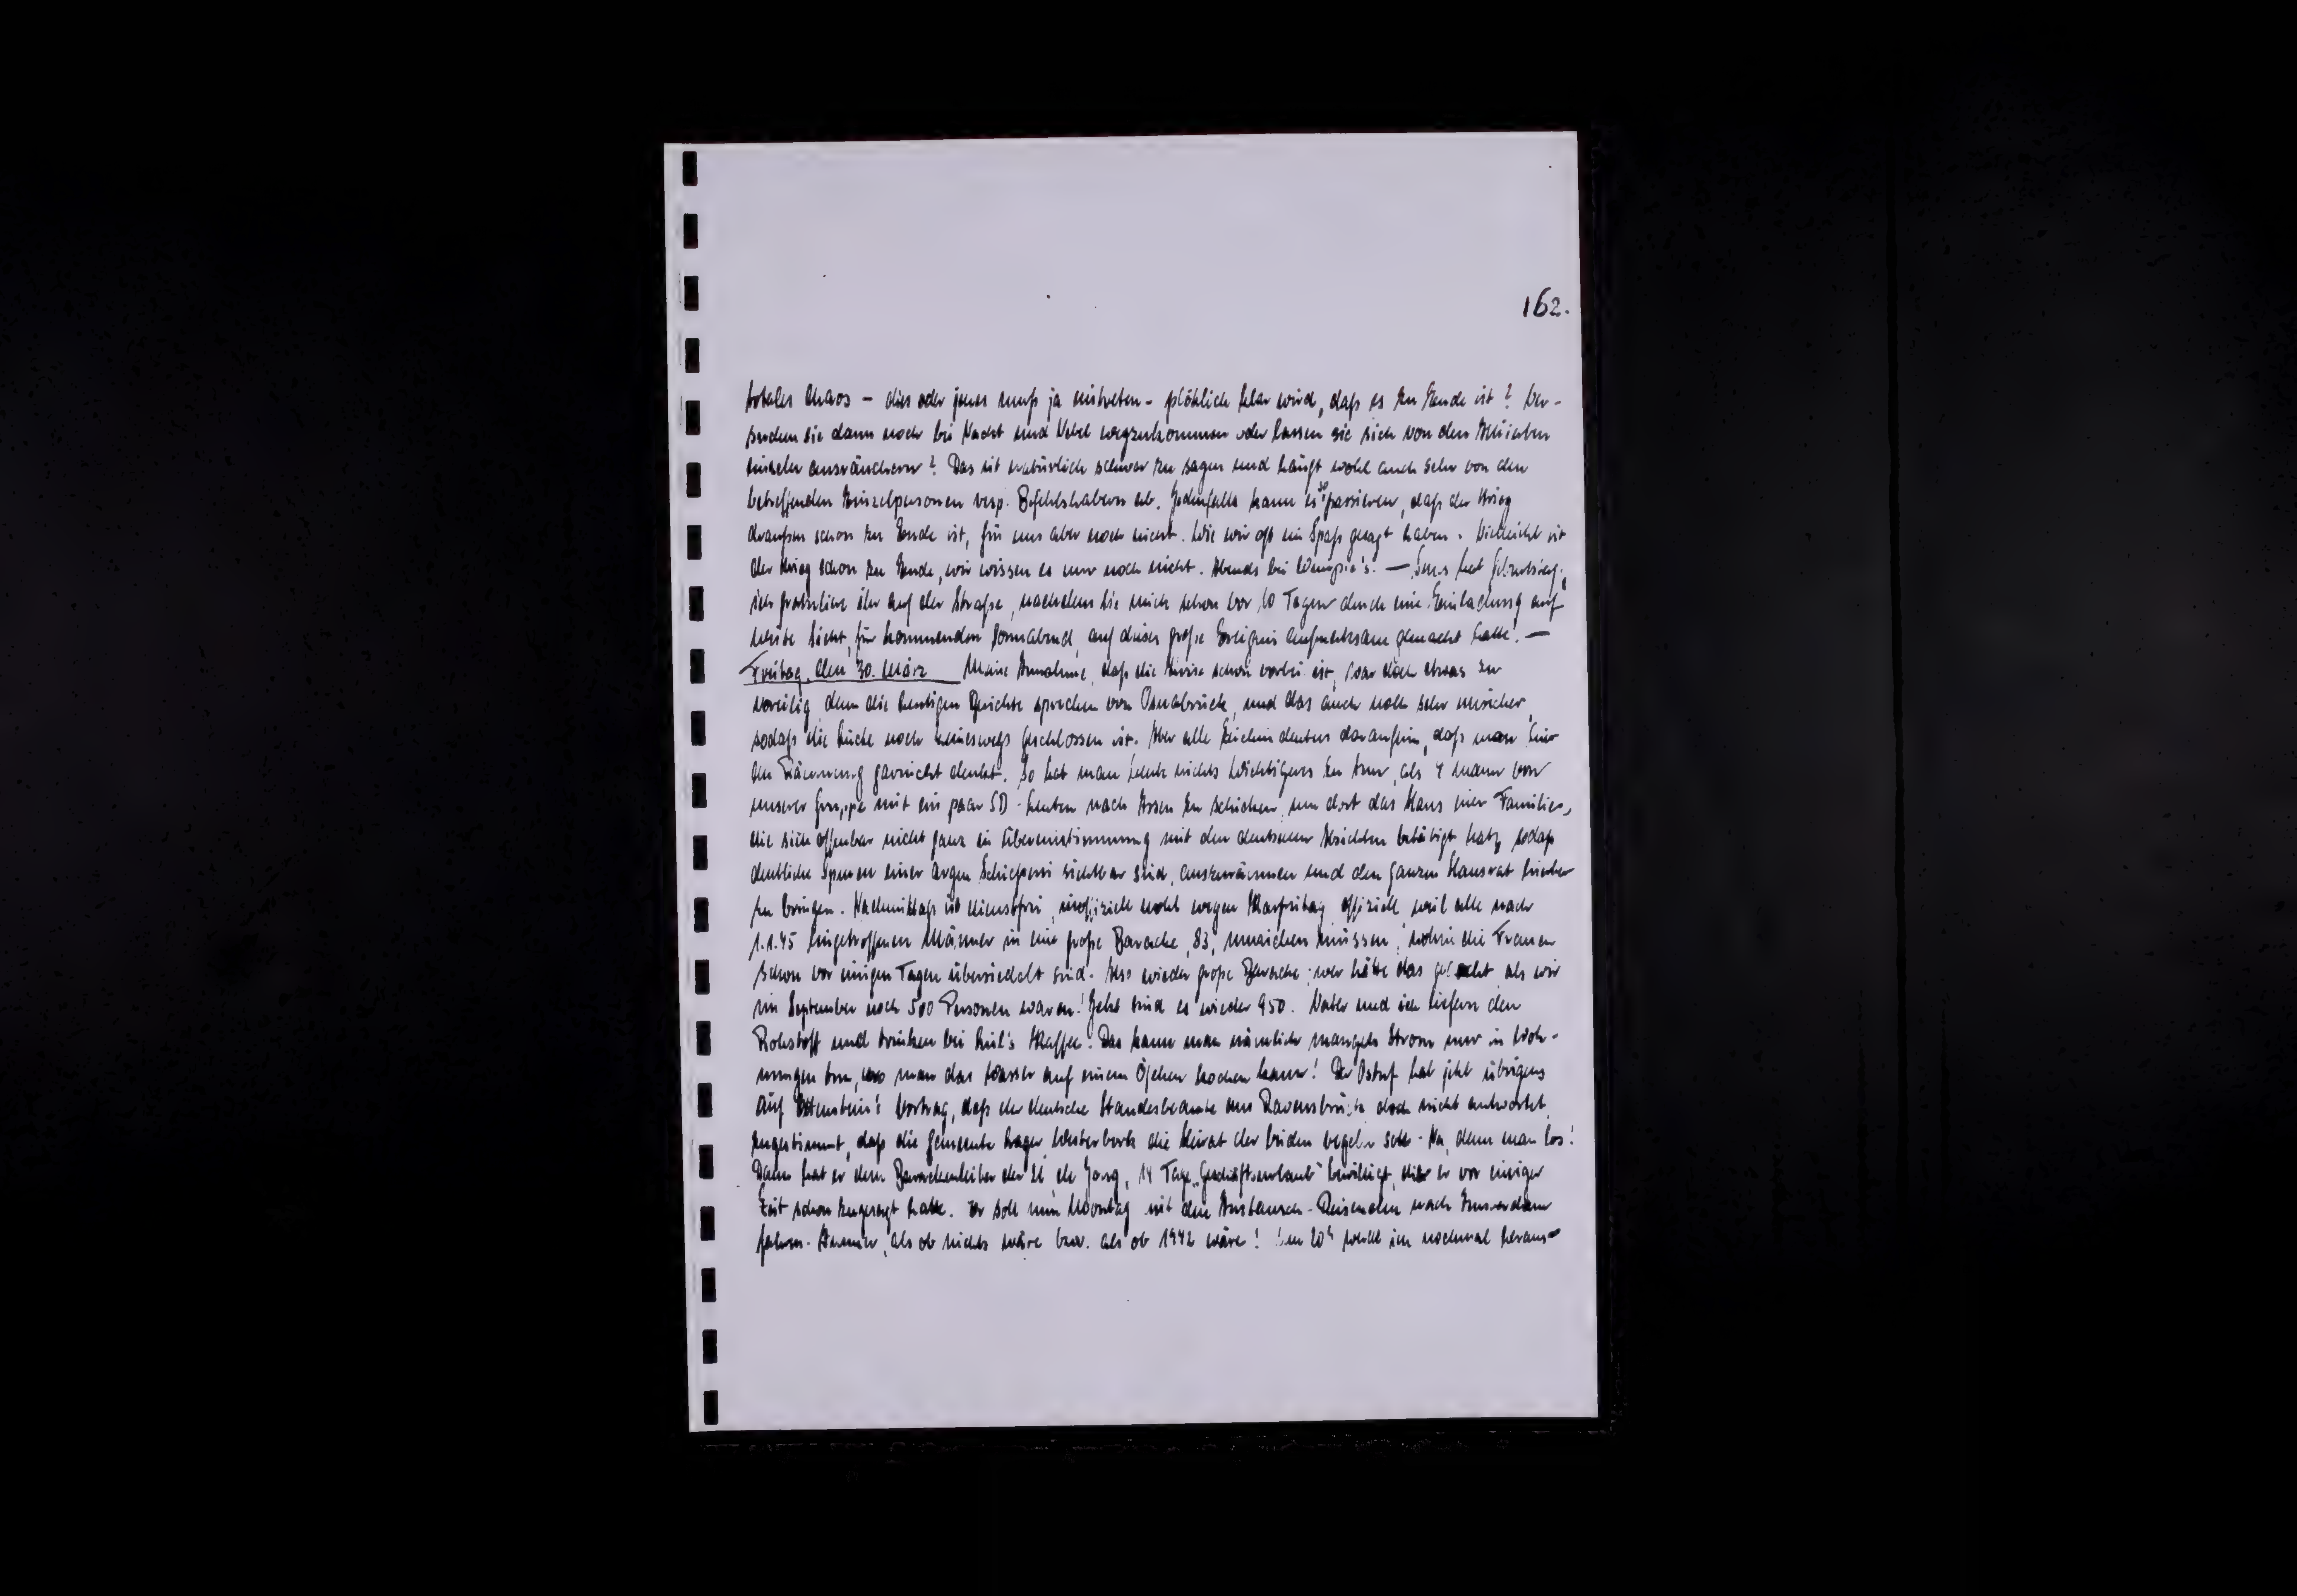 162.
totales Chaos – dies oder jenes muß ja eintreten – plötzlich klar wird, daß es zu Ende ist? Ver-
suchen sie dann noch bei Nacht und Nebel wegzukommen oder lassen sie sich von den Alliierten
einzeln ausräuchern? Das ist natürlich schwer zu sagen und hängt wohl auch sehr von den
betreffenden Einzelpersonen resp. Befehlshabern ab. Jedenfalls kann es so passieren, daß der Krieg
draußen schon zu Ende ist, für uns aber noch nicht. Wie wir oft im Spaß gesagt haben: Vielleicht ist
der Krieg schon zu Ende, wir wissen es nur noch nicht. Abends bei – hat Geburtstag;
ich gratuliere ihr auf der Straße, nachdem sie mich schon vor 10 Tagen durch eine Einladung auf
weite Sicht, für kommenden Sonnabend, auf dieses große Ereignis aufmerksam gemacht hatte. –
Freitag, den 30. März Meine Annahme, daß die Krise schon vorbei ist, war doch etwas zu
voreilig, denn die heutigen Berichte sprechen von Osnabrück, und das auch noch sehr unsicher,
sodaß die Lücke noch keineswegs geschlossen ist. Aber alle Zeichen deuten daraufhin, daß man hier
an Räumung garnicht denkt. So hat man heute nichts Wichtigeres zu tun, als 4 Mann von
unserer Gruppe mit ein paar SD-Leuten nach Assen zu schicken, um dort das Haus einer Familie,
die sich offenbar nicht ganz in Übereinstimmung mit den deutschen Absichten betätigt hat, sodaß
deutliche Spuren einer argen Schießerei sichtbar sind, auszuräumen und den ganzen Hausrat hierher
zu bringen. Nachmittags ist dienstfrei, inoffiziell wohl wegen Karfreitag, offiziell, weil alle nach
1.1.45 eingetroffenen Männer in eine große Baracke, 83, umziehen müssen, wohin die Frauen
schon vor einigen Tagen übersiedelt sind. Also wieder große Baracke; wer hätte das gedacht als wir
im September noch 500 Personen waren! Jetzt sind es wieder 950. Vater und ich liefern den
Rohstoff und trinken bei Kaffee. Das kann man nämlich mangels Strom nur in Woh-
nungen tun, wo man das Wasser auf einem Öfchen kochen kann! Der Ostuf hat jetzt übrigens
auf Vortrag, daß der deutsche Standesbeamte aus Ravensbrück doch nicht antwortet,
zugestimmt, daß die Gemeente Lager Westerbork die Heirat der beiden regeln soll. Na, denn man los!
Dann hat er dem Barackenleiter der 21, de Jong, 14 Tage „Geschäftsurlaub" bewilligt, die er vor einiger
Zeit schon zugesagt hatte. Er soll nun Montag mit den Austausch-Reisenden nach Amsterdam
fahren. Immer, als ob nichts wäre bzw. als ob 1942 wäre! Um 20h werde ich nochmal heraus-